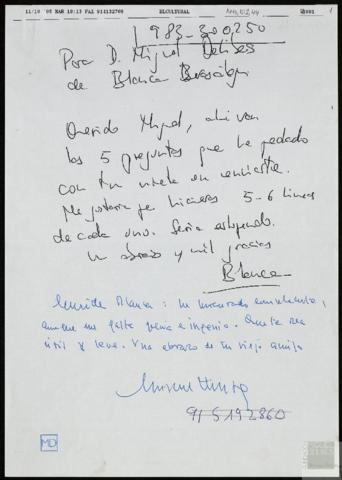 11/10 '05 MAR 18:13 FAX 914132760 ELCULTURAL 001
1
983-300250
Para D. Miguel Delibes
de Blanca Berasátegui
Querido Miguel, ahí van
las 5 preguntas que he quedado
con tu nieta en enviarte.
Me gustaría que hicieras 5-6 líneas
de cada una. Sería estupendo.
Un abrazo y mil gracias
Blanca
Querida Blanca: he
aunque me falta vena e ingenio.
útil y leve. Un abrazo de tu viejo amigo
91 5192860
MD